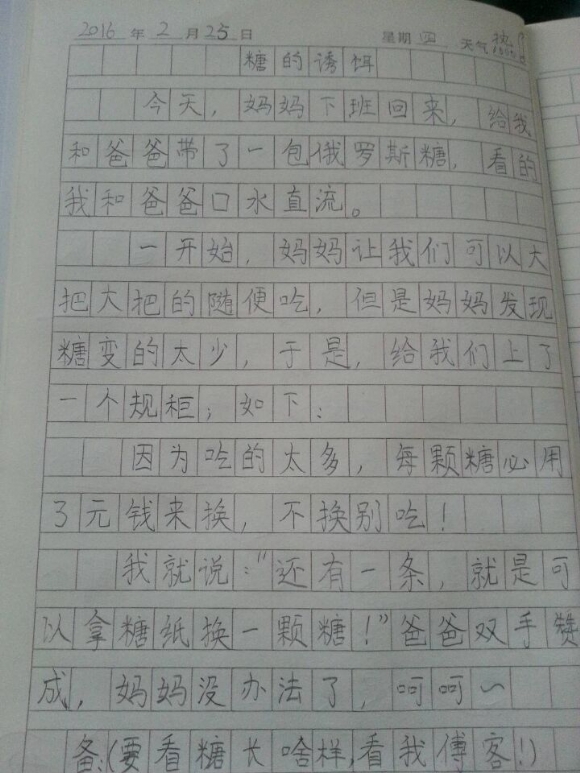 2016 年 2 月 25 日 星期 四 天气
糖的诱饵
今天，妈妈下班回来，给我
和爸爸带了一包俄罗斯糖，看的
我和爸爸口水直流。
一开始，妈妈让我们可以大
把大把的随便吃，但是妈妈发现
糖变的太少，于是，给我们上了
一个规柜；如下：
因为吃的太多，每颗糖必用
3元钱来换，不换别吃！
我就说：“还有一条，就是可
以拿糖纸换一颗糖！”爸爸双手赞
成，妈妈没办法了，呵呵~
备：（要看糖长啥样，看我傅客！）